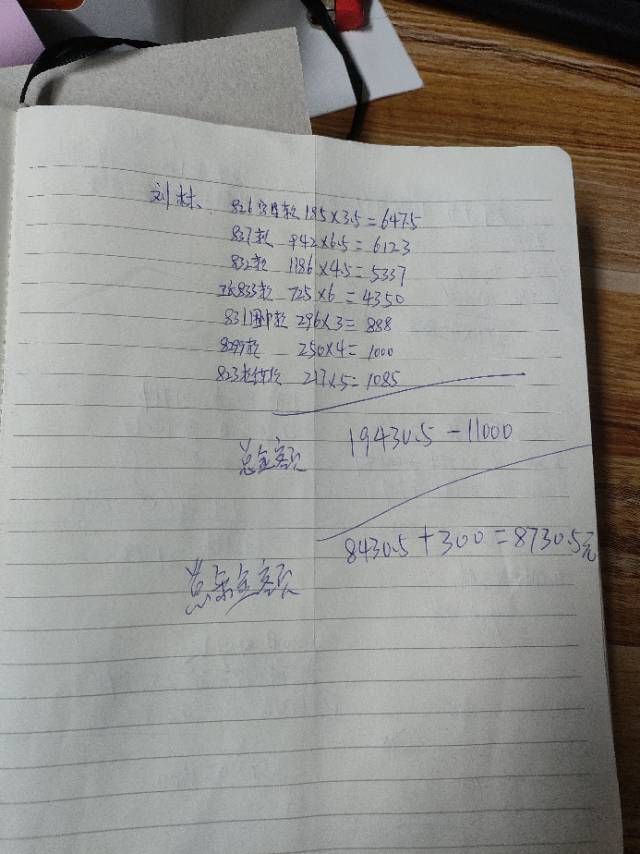 刘林、 826 款 185×3.5=6475
837款 942×6.5=6123
832款 1186×4.5=5337
833款 725×6=4350
831 款 296×3=888
829款 250×4=1000
823 217×5=1085
总金额 19430.5-11000
8430.5+300=8730.5元
总余金额